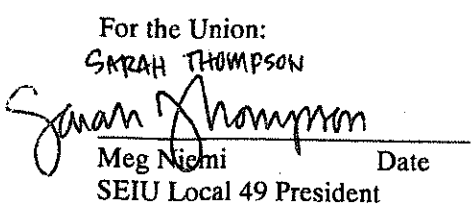 For the Union:
SARAH THOMPSON
Sarah Thompson
Meg Niemi Date
SEIU Local 49 President